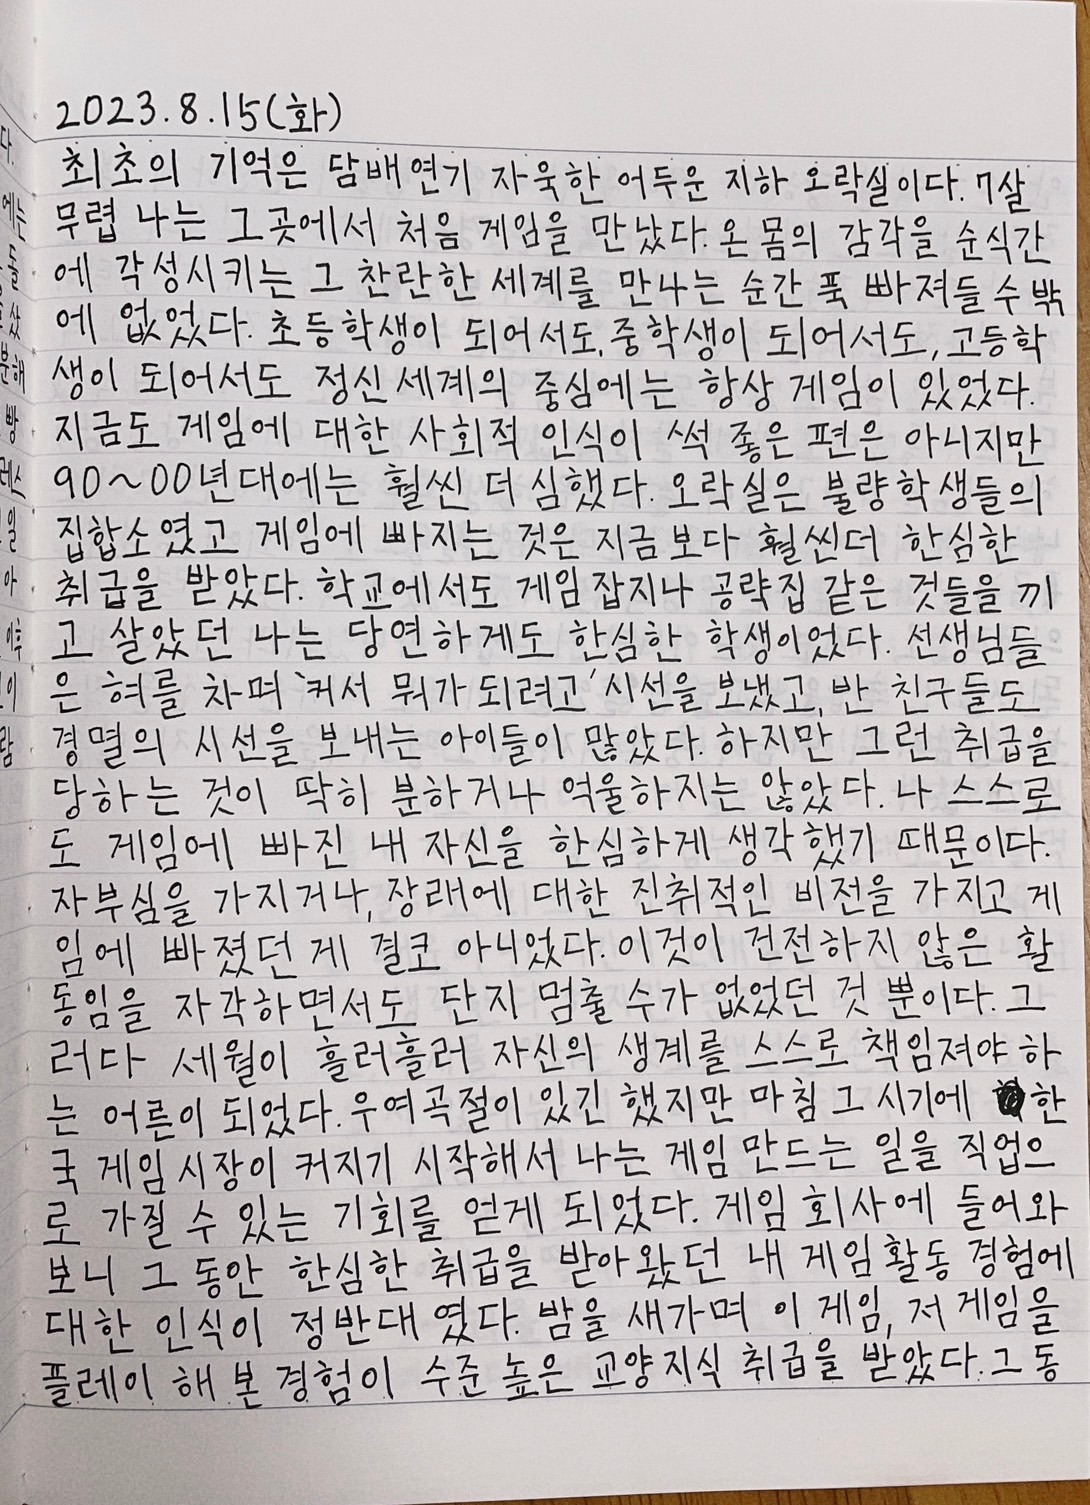 2023.8.15(화)
최초의 기억은 담배연기 자욱한 어두운 지하 오락실이다. 7살
무렵 나는 그곳에서 처음 게임을 만났다. 온 몸의 감각을 순식간
에 각성시키는 그 찬란한 세계를 만나는 순간 푹 빠져들 수 밖
에 없었다. 초등학생이 되어서도, 중학생이 되어서도, 고등학
생이 되어서도 정신세계의 중심에는 항상 게임이 있었다.
지금도 게임에 대한 사회적 인식이 썩 좋은 편은 아니지만
90~00년대에는 훨씬 더 심했다. 오락실은 불량학생들의
집합소였고 게임에 빠지는 것은 지금보다 훨씬더 한심한
취급을 받았다. 학교에서도 게임잡지나 공략집 같은 것들을 끼
고 살았던 나는 당연하게도 한심한 학생이었다. 선생님들
은 혀를 차며 '커서 뭐가되려고' 시선을 보냈고, 반 친구들도
경멸의 시선을 보내는 아이들이 많았다. 하지만 그런 취급을
당하는 것이 딱히 분하거나 억울하지는 않았다. 나 스스로
도 게임에 빠진 내 자신을 한심하게 생각했기 때문이다.
자부심을 가지거나, 장래에 대한 진취적인 비전을 가지고 게
임에 빠졌던 게 결코 아니었다. 이것이 건전하지 않은 활
동임을 자각하면서도 단지 멈출 수가 없었던 것 뿐이다. 그
러다 세월이 흘러흘러 자신의 생계를 스스로 책임져야 하
는 어른이 되었다. 우여곡절이 있긴 했지만 마침 그 시기에 한
국 게임시장이 커지기 시작해서 나는 게임 만드는 일을 직업으
로 가질 수 있는 기회를 얻게 되었다. 게임 회사에 들어와
보니 그 동안 한심한 취급을 받아왔던 내 게임활동 경험에
대한 인식이 정반대였다. 밤을 새가며 이 게임, 저 게임을
플레이 해 본 경험이 수준 높은 교양지식 취급을 받았다. 그 동